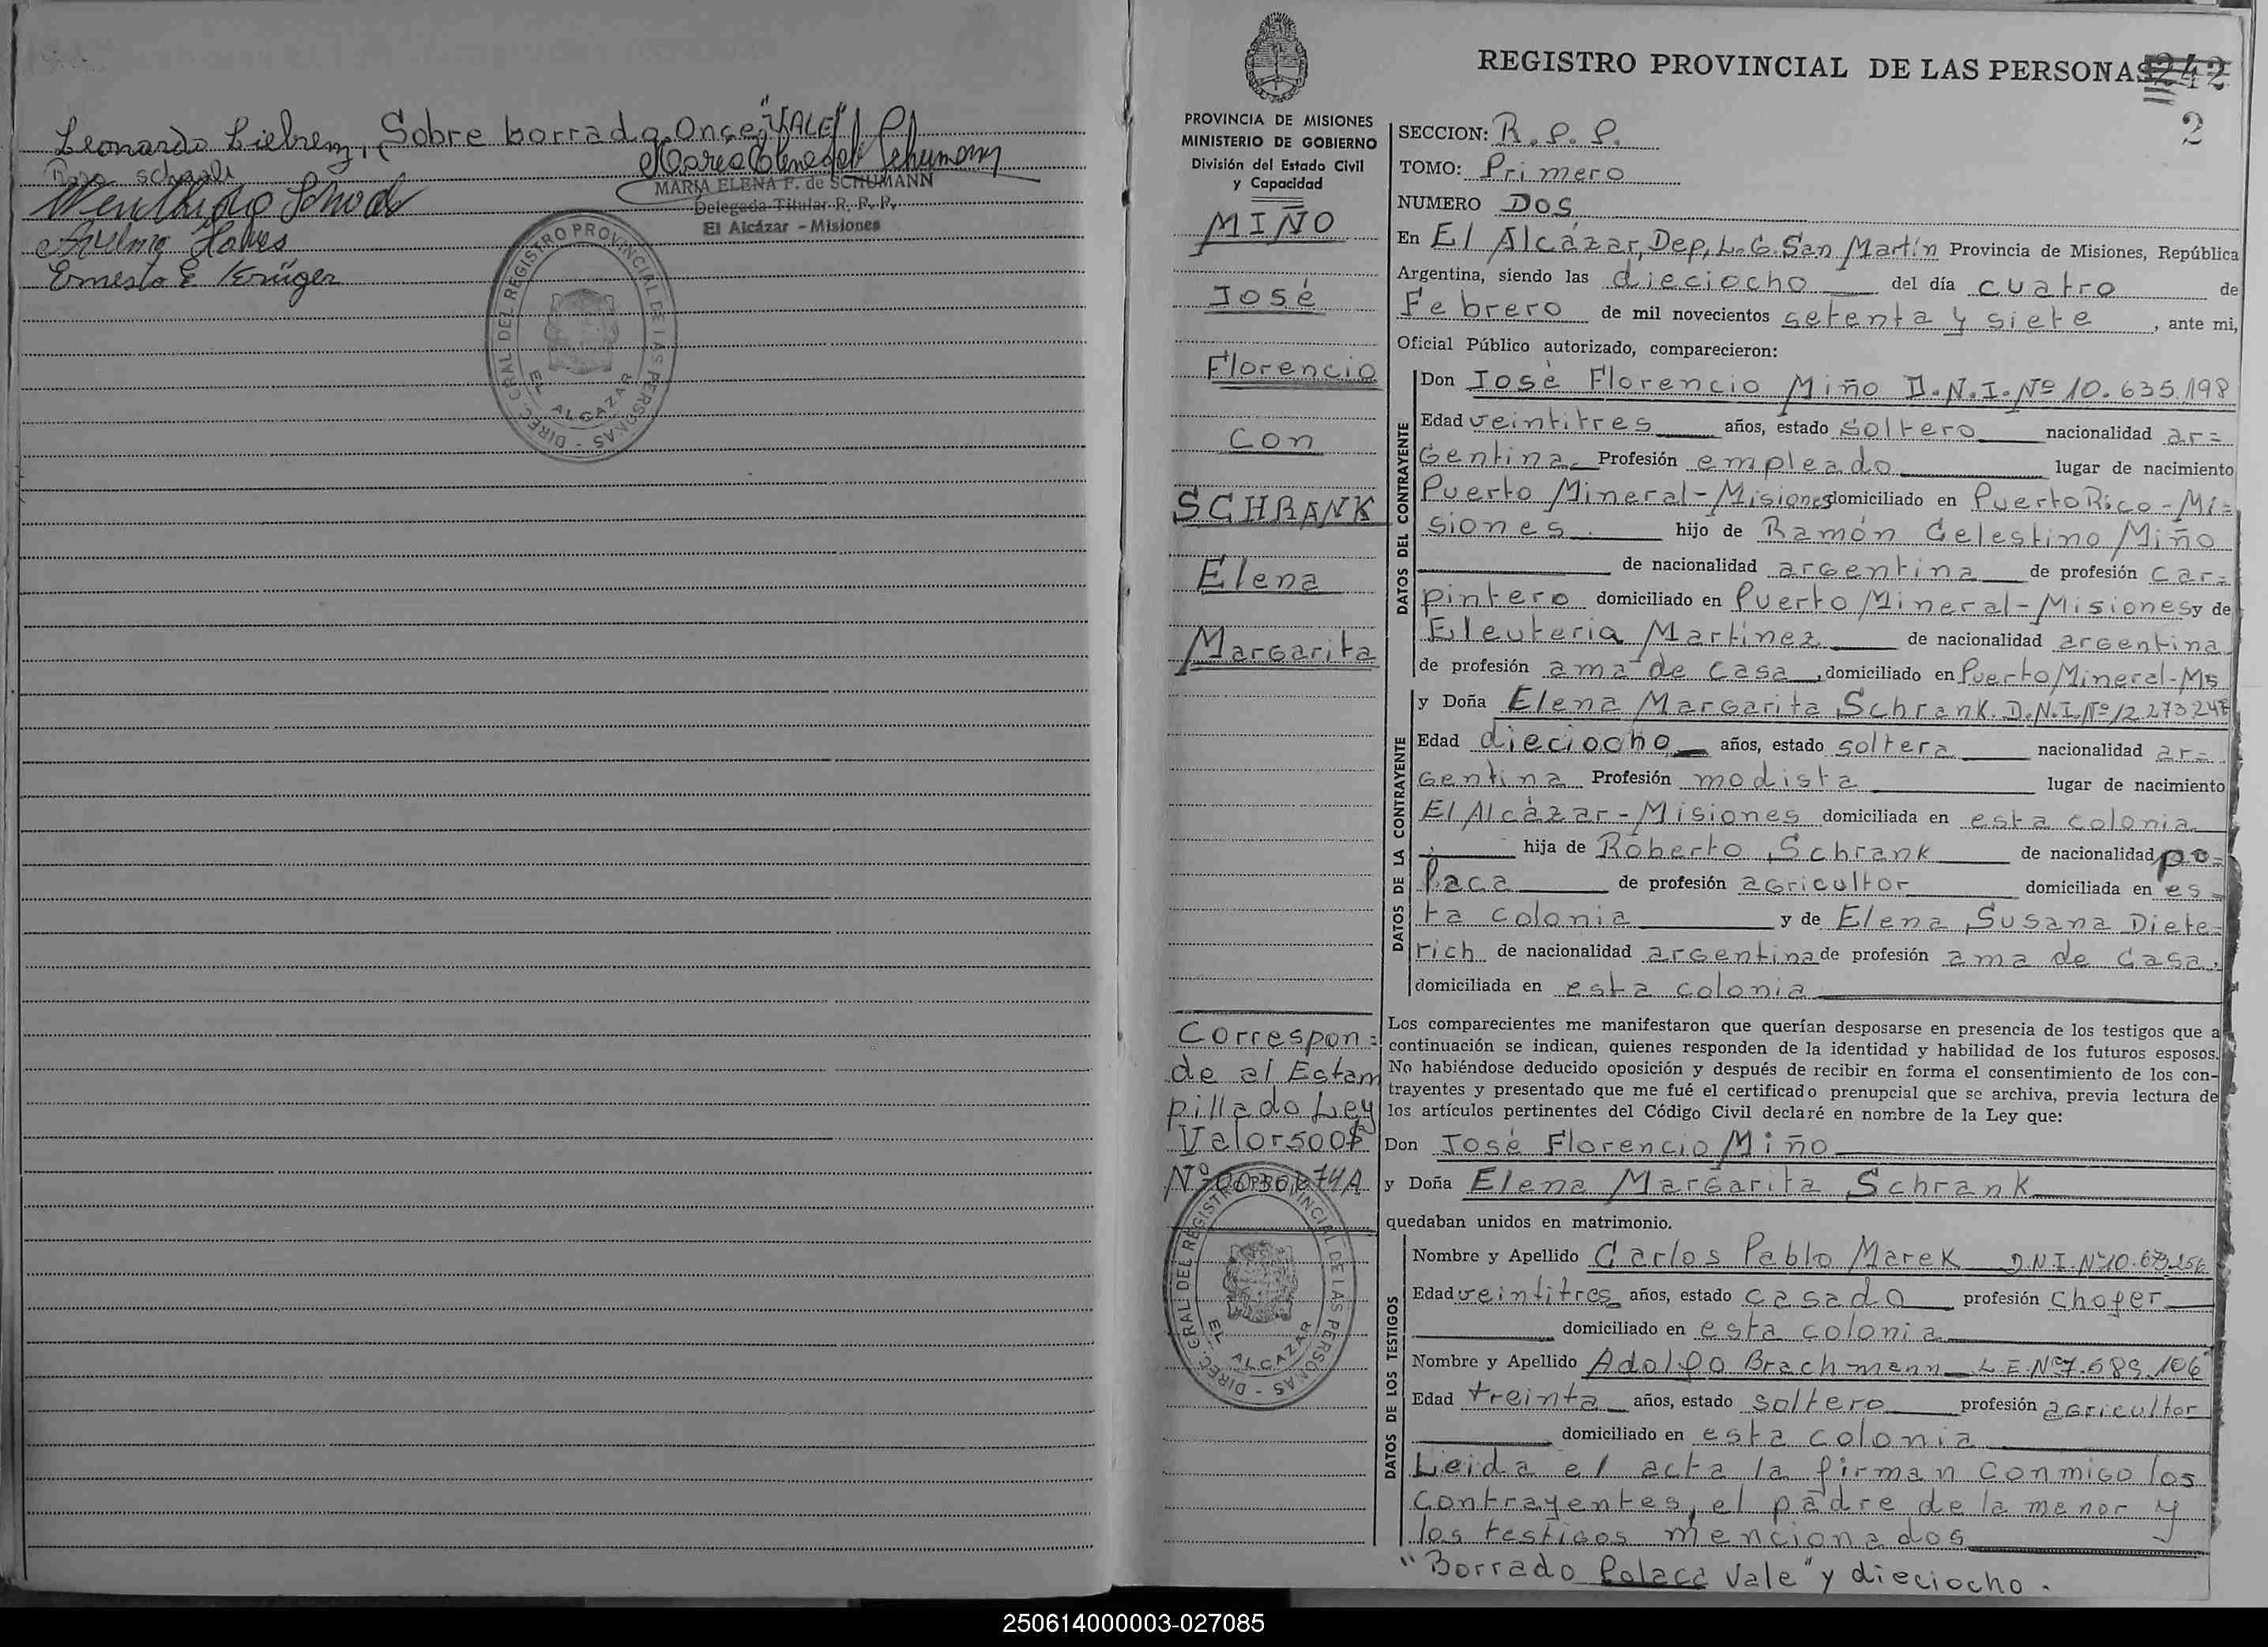 Leonardo Sobre borrado Once "VALE"
Rosa schaab
MARIA ELENA F. de SCHUMANN
Delegada Titular R. P. P.
El Alcázar - Misiones
Ernesto E. Krüger
DIREC. GRAL DEL REGISTRO PROVINCIAL DE LAS PERSONAS -
EL ALCAZAR
REGISTRO PROVINCIAL DE LAS PERSONAS
242
2
PROVINCIA DE MISIONES
MINISTERIO DE GOBIERNO
División del Estado Civil
y Capacidad
MIÑO
José
Florencio
con
SCHRANK
Elena
Margarita
Correspon=
de al Estam
pillado Ley
Valor 500$
DIREC. GRAL DEL REGISTRO PROVINCIAL DE LAS PERSONAS -
EL ALCAZAR
SECCION: R.P.P.
TOMO: Primero
NUMERO DOS
En El Alcázar, Dep, L.G. San Martín Provincia de Misiones, República
Argentina, siendo las dieciocho del día cuatro de
Febrero de mil novecientos setenta y siete, ante mi,
Oficial Público autorizado, comparecieron:
DATOS DEL CONTRAYENTE
Don José Florencio Miño D.N.I. Nº 10.635.198
Edad veintitres años, estado soltero nacionalidad ar=
gentina Profesión empleado lugar de nacimiento
Puerto Mineral-Misiones domiciliado en Puerto Rico-Mi=
siones hijo de Ramón Celestino Miño
de nacionalidad argentina de profesión car=
pintero domiciliado en Puerto Mineral-Misiones y de
Eleuteria Martínez de nacionalidad argentina
de profesión ama de casa, domiciliado en Puerto Mineral-Ms
DATOS DE LA CONTRAYENTE
y Doña Elena Margarita Schrank D.N.I. Nº
Edad dieciocho años, estado soltera nacionalidad ar=
gentina Profesión modista lugar de nacimiento
El Alcázar-Misiones domiciliada en esta colonia
hija de Roberto Schrank de nacionalidad po=
laca de profesión agricultor domiciliada en es=
ta colonia y de Elena Susana Diete=
rich de nacionalidad argentina de profesión ama de casa,
domiciliada en esta colonia
Los comparecientes me manifestaron que querían desposarse en presencia de los testigos que a
continuación se indican, quienes responden de la identidad y habilidad de los futuros esposos.
No habiéndose deducido oposición y después de recibir en forma el consentimiento de los con-
trayentes y presentado que me fué el certificado prenupcial que se archiva, previa lectura de
los artículos pertinentes del Código Civil declaré en nombre de la Ley que:
Don José Florencio Miño
y Doña Elena Margarita Schrank
quedaban unidos en matrimonio.
DATOS DE LOS TESTIGOS
Nombre y Apellido Carlos Pablo Marek D.N.I. Nº
Edad veintitres años, estado casado profesión chofer
domiciliado en esta colonia
Nombre y Apellido Adolfo Brachmann L.E. Nº 7.689.106
Edad treinta años, estado soltero profesión agricultor
domiciliado en esta colonia
Leida el acta la firman conmigo los
contrayentes, el padre de la menor y
los testigos mencionados
"Borrado Polaca Vale" y dieciocho.
250614000003-027085